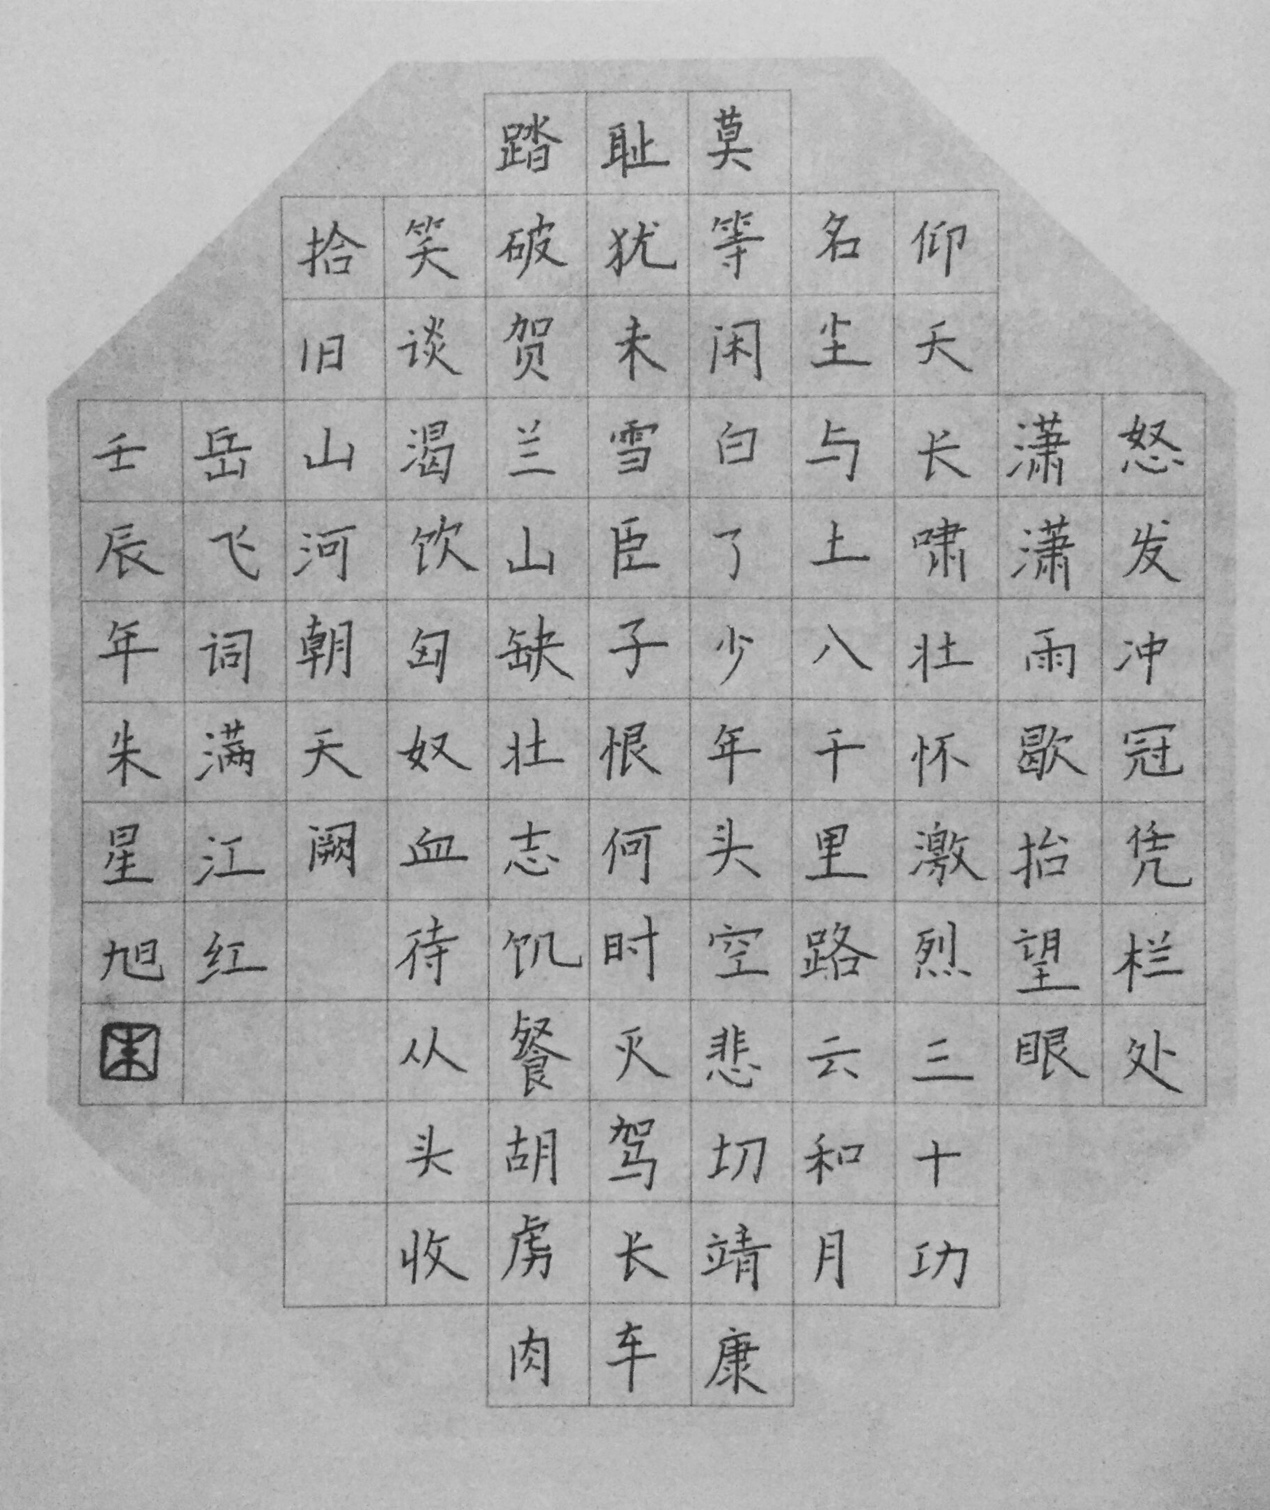 怒发冲冠凭栏处
潇潇雨歇抬望眼
仰天长啸壮怀激烈三十功
名尘与土八千里路云和月
莫等闲白了少年头空悲切靖康
耻犹未雪臣子恨何时灭驾长车
踏破贺兰山缺壮志饥餐胡虏肉
笑谈渴饮匈奴血待从头收
拾旧山河朝天阙
岳飞词满江红
壬辰年朱星旭
朱